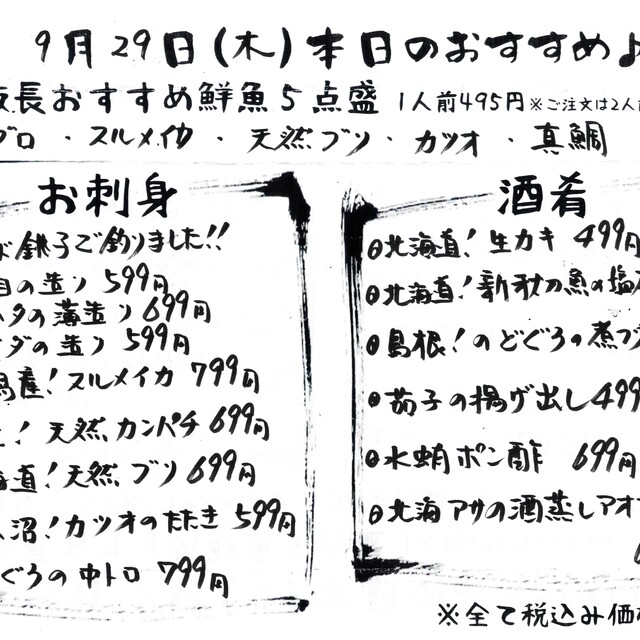 9月29日(木)本日のおすすめ♪
長おすすめ鮮魚5点盛 1人前495円 ※ご注文は2人前
グロ・スルメイカ・天然ブリ・カツオ・真鯛
お刺身
銚子で釣りました!!
目の造り 599円
ハタの薄造り 699円
ダの造り 599円
島産!スルメイカ 799円
!天然カンパチ 699円
海道!天然ブリ 699円
沼!カツオのたたき 599円
ぐろの中トロ 799円
酒肴
北海道!生カキ 499円
北海道!新秋刀魚の塩
島根!のどぐろの煮つ
茄子の揚げ出し 499
水蛸ポン酢 699円
北海アサリの酒蒸しアオ
※全て税込み価格